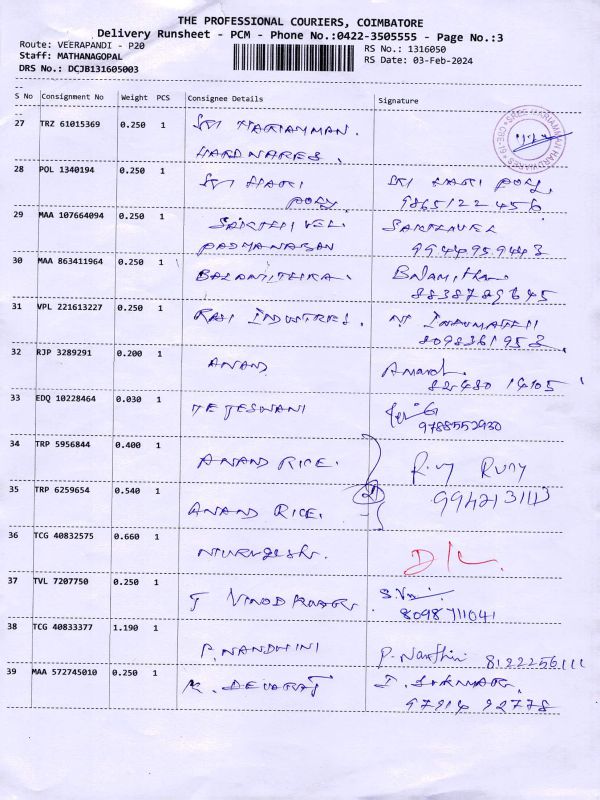 THE PROFESSIONAL COURIERS, COIMBATORE
Delivery Runsheet - PCM - Phone No.:0422-3505555 - Page No.:3
Route: VEERAPANDI - P20
RS No.: 1316050
Staff: MATHANAGOPAL
RS Date: 03-Feb-2024
DRS No.: DCJB131605003
S No Consignment No Weight PCS Consignee Details Signature
27 TRZ 61015369 0.250 1 SRI MARIAMMAN.
HARDWARES.
28 POL 1340194 0.250 1 SRI HARI SRI HARI POLY,
POLY 9865122456
29 MAA 107664094 0.250 1 SAKTHIVEL SAKTHIVEL
PADMANABAN 9944959443
30 MAA 863411964 0.250 1
8838789645
31 VPL 221613227 0.250 1 RAJI INDUSTRIES.
8098361953
32 RJP 3289291 0.200 1 ANAND Anand.
82480 14105
33 EDQ 10228464 0.030 1 TEJESWANI
9788552930
34 TRP 5956844 0.400 1 ANAND RICE.
35 TRP 6259654 0.540 1 ANAND RICE.
36 TCG 40832575 0.660 1 D/L
37 TVL 7207750 0.250 1 T VINOD KUMAR
8098711041
38 TCG 40833377 1.190 1 P. NANDHINI P. Nandhini 8122256111
39 MAA 572745010 0.250 1 K. DEVARAJ
97914 92778